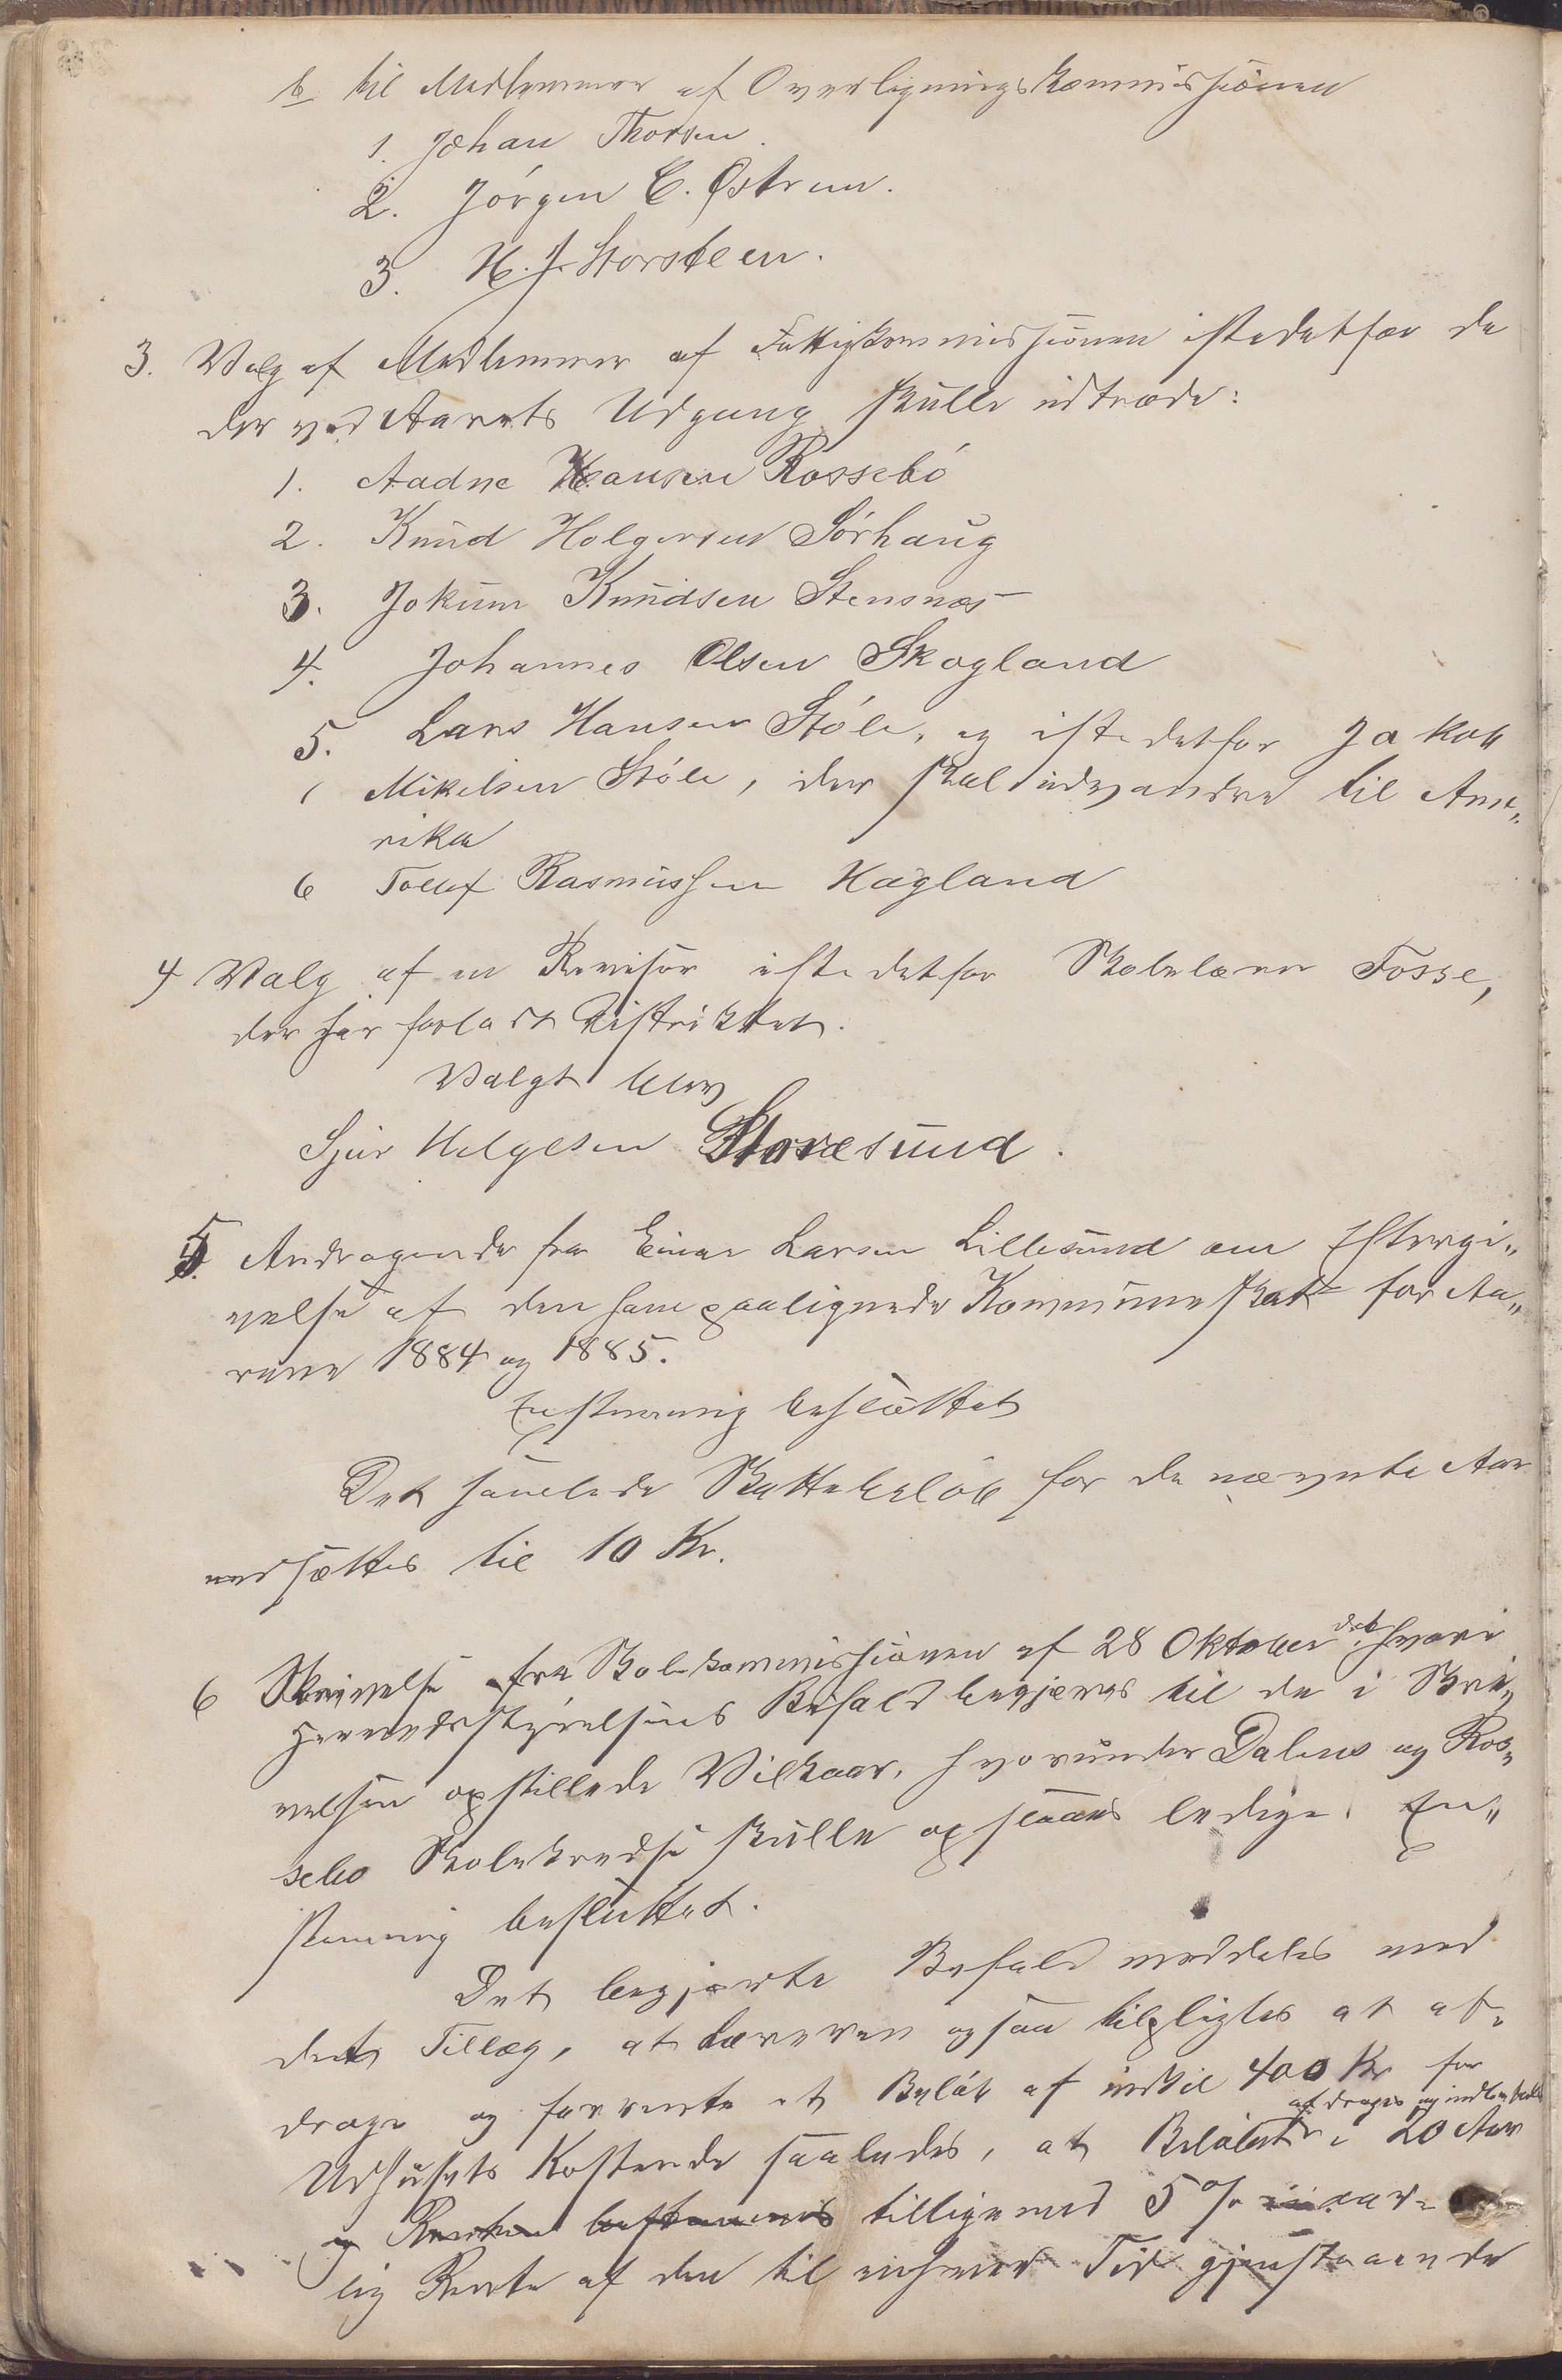 b til Medlemmer af Overligningskommissionen
1. Johan Thorsen.
2. Jørgen C. Østrem.
3. H. J. Storsteen.
3. Valg af Medlemmer af Fattigkommissionen istedetfor de
der ved Aarets Udgang skulle udtræde:
1. Aadne Hansen Rossebø
2. Knud Holgersen Sørhaug
3. Jokum Knudsen Stensnæs
4. Johannes Olsen Skogland
5. Lars Hansen Støle, og istedetfor Jakob
Mikelsen Støle, der skal udvandre til Ame„
rika
6 Tollef Rasmussen Hagland
4 Valg af en Revisor istedetfor Skolelærer Fosse,
der har forladt Distriktet.
Valgt blev
Sjur Helgesen Storesund.
5 Andragende fra Einar Larsen Lillesund om Eftergi„
velse af den ham paalignede Kommuneskat for Aa„
rene 1884 og 1885.
Enstemmig besluttet
Det samlede Skattebeløb for de nævnte Aar
nedsættes til 10 Kr.
6 Skrivelse fra Skolekommissionen af 28 Oktober d.A. hvori
Herredsstyrelsens Bifald begjæres til de i Skri„
velsen opstillede Vilkaar, hvorunder Dalens og Ros„
sebø Skolekredse skulle opslaaes ledige. En„
stemmig besluttet.
Det begjærte Bifald meddeles med
det Tillæg, at Læreren ogsaa tilpligtes at af„
drage og forrente et Beløb af indtil 400 Kr for
Udhusets Kostende saaledes, at Beløbet afdrages og indbetales i 20 Aar
og Renten bestemmes tilligemed 5 % aar„
lig Rente af den til enhver Tid gjenstaaende